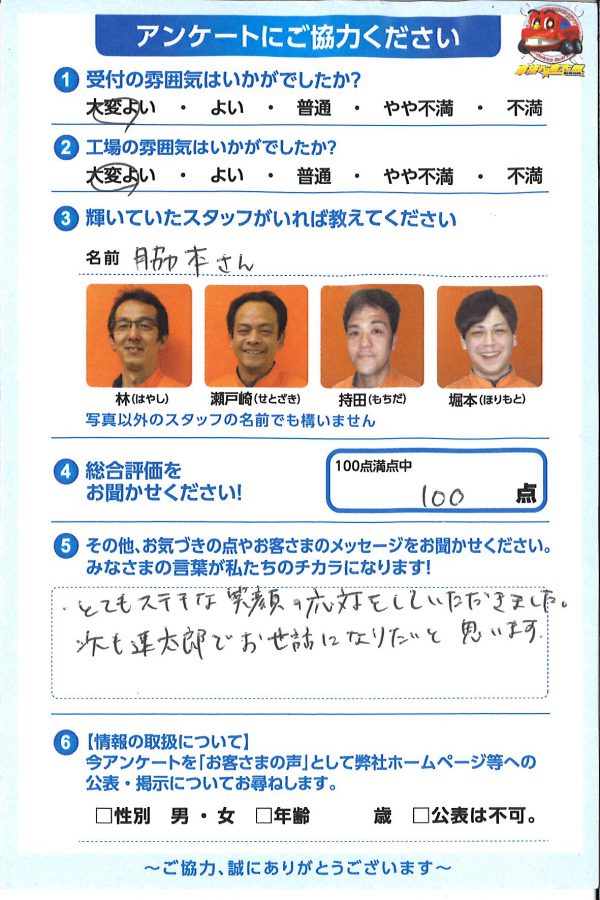 アンケートにご協力ください
1 受付の雰囲気はいかがでしたか?
大変よい ・ よい ・ 普通 ・ やや不満 ・ 不満
2 工場の雰囲気はいかがでしたか?
大変よい ・ よい ・ 普通 ・ やや不満 ・ 不満
3 輝いていたスタッフがいれば教えてください
名前 脇本さん
林(はやし) 瀬戸崎(せとざき) 持田(もちだ) 堀本(ほりもと)
写真以外のスタッフの名前でも構いません
4 総合評価を
お聞かせください!
100点満点中
100 点
5 その他、お気づきの点やお客さまのメッセージをお聞かせください。
みなさまの言葉が私たちのチカラになります!
・とてもステキな笑顔の応対をしていただきました。
次も速太郎でお世話になりたいと思います。
6 【情報の取扱について】
今アンケートを「お客さまの声」として弊社ホームページ等への
公表・掲示についてお尋ねします。
□性別 男・女 □年齢 歳 □公表は不可。
~ご協力、誠にありがとうございます~